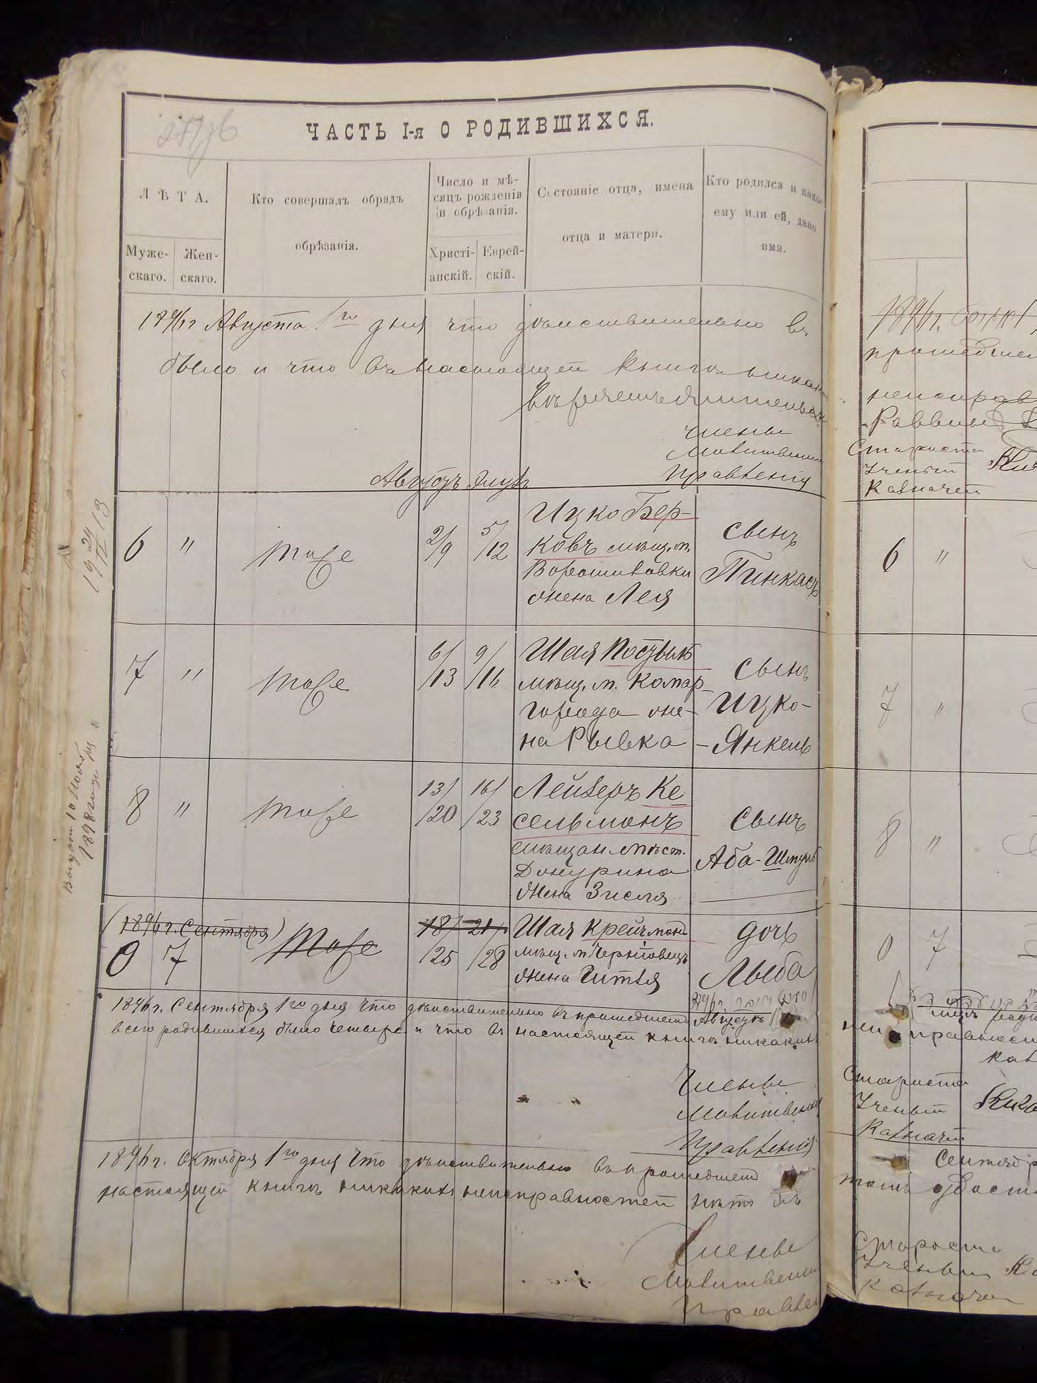 ЧАСТЬ I-я О РОДИВШИХСЯ.
ЛѢТА.
Муже-
скаго.
Жен-
скаго.
Кто совершалъ обрядъ
обрѣзанія.
Число и мѣ-
сяцъ рожденія
и обрѣзанія.
Христі-
анскій.
Еврей-
скій.
Состояніе отца, имена
отца и матери.
Кто родился и какое
ему или ей, дано
имя.
1896 г Августа 1го дня что дѣйствительно въ
было и что въ настоящей книгѣ никаки
Члены
Молитвеннаго
Правленія
Августъ Элулъ
6 " тоже 2/9 5/12
Ицко Бер-
ковъ мѣщ. м.
Ворошиловки
жена Лея
сынъ
Пинкасъ
7 " тоже 6/13 9/16
Шая
мѣщ. м. Комар-
города же-
на Рывка
сынъ
Ицко-
-Янкель
8 " тоже 13/20 16/23
Лейзеръ Ке
сельманъ
мѣщан. мѣст.
Джурина
жена Зисля
сынъ
Аба-Шмуль
(1896 г. Сентября)
0 7 тоже 18/25 21/28
Шая Крейчман
мѣщ. м. Черніовецъ
жена Гитля
дочь
Лыба
1896 г. Сентября 1го дня что дѣйствительно въ прошедшемъ Августѣ
всего родившихся было четверо и что въ настоящей книгѣ никакихъ
Члены
Молитвеннаго
Правленія
1896 г. Октября 1го дня что дѣйствительно въ прошедшем
настоящей книгѣ никакихъ неисправностей нѣтъ въ
Члены
Молитвенна
Правлен
1896 г.
прошедшем
неисправ
Раввин
Староста
Ученый
Казначей
6 "
7 "
8 "
0 7
неисправност
Староста
Ученый
Казначей
Сентябр
Староста
Ученый
Казначей